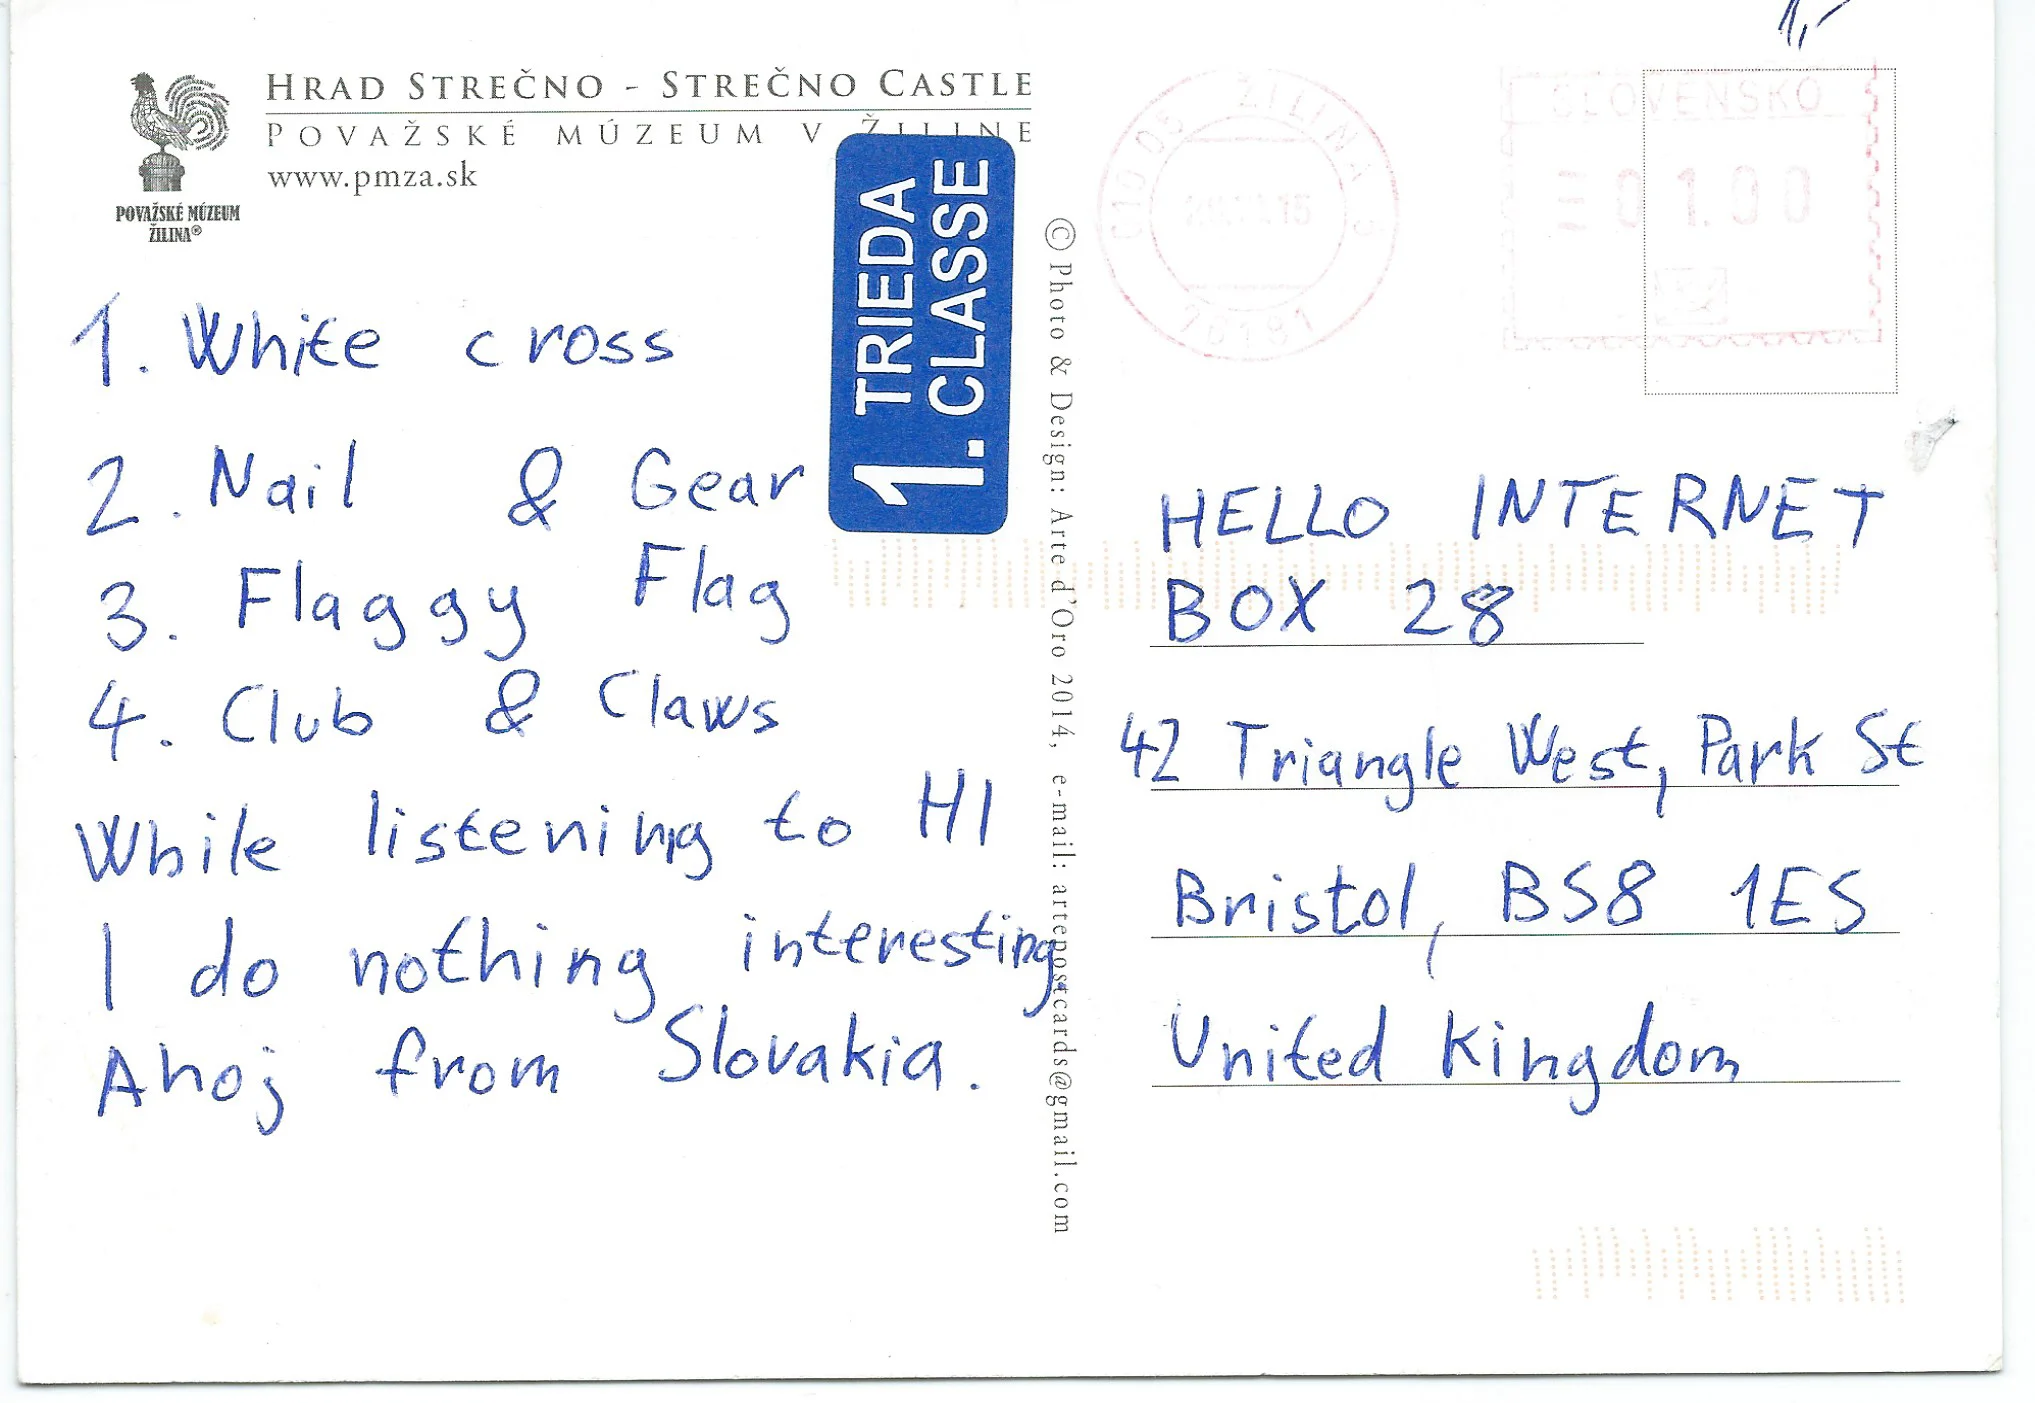 HRAD STREČNO - STREČNO CASTLE
POVAŽSKÉ MÚZEUM V ŽILINE
www.pmza.sk
POVAŽSKÉ MÚZEUM
ŽILINA®
1. TRIEDA
1. CLASSE
1. White cross
2. Nail & Gear
3. Flaggy Flag
4. Club & Claws
While listening to HI
I do nothing interesting.
Ahoj from Slovakia.
© Photo & Design: Arte d'Oro 2014, e-mail: artepostcards@gmail.com
1,-
ŽILINA
SLOVENSKO
01.00
HELLO INTERNET
BOX 28
42 Triangle West, Park St
Bristol, BS8 1ES
United Kingdom